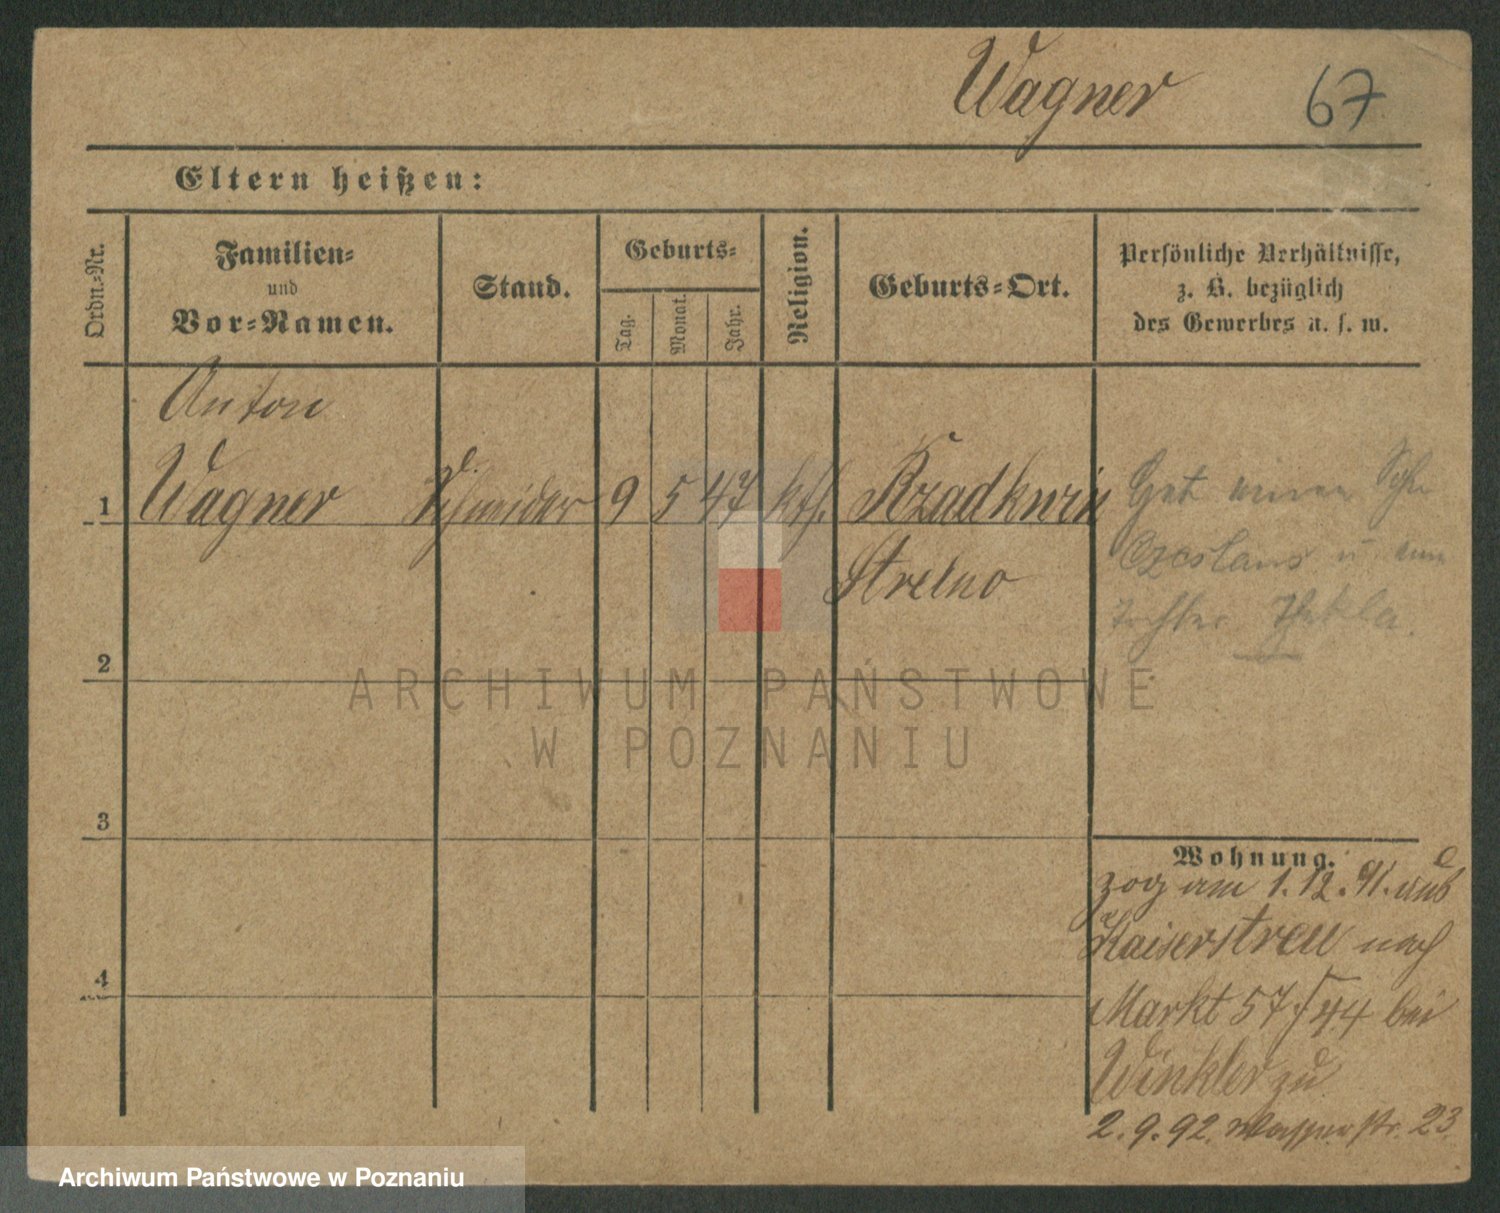 Wagner 67
Eltern heißen:
Ordn.-Nr.
Familien-
und
Vor-Namen.
Stand.
Geburts-
Tag.
Monat.
Jahr.
Religion.
Geburts-Ort.
Persönliche Verhältnisse,
z. B. bezüglich
des Gewerbes u. s. w.
Anton
1 Wagner Schneider 9 5 47 kth. Rzadkwin
Strelno
Hat einen Sohn
Czeslaus u eine
Tochter Thekla.
2
3
4
Wohnung.
zog am 1.12.91. aus
Kaiserstreu nach
Markt 57/44 bei
Winkler zu
2.9.92. Wasserstr. 23
ARCHIWUM PAŃSTWOWE
W POZNANIU
Archiwum Państwowe w Poznaniu